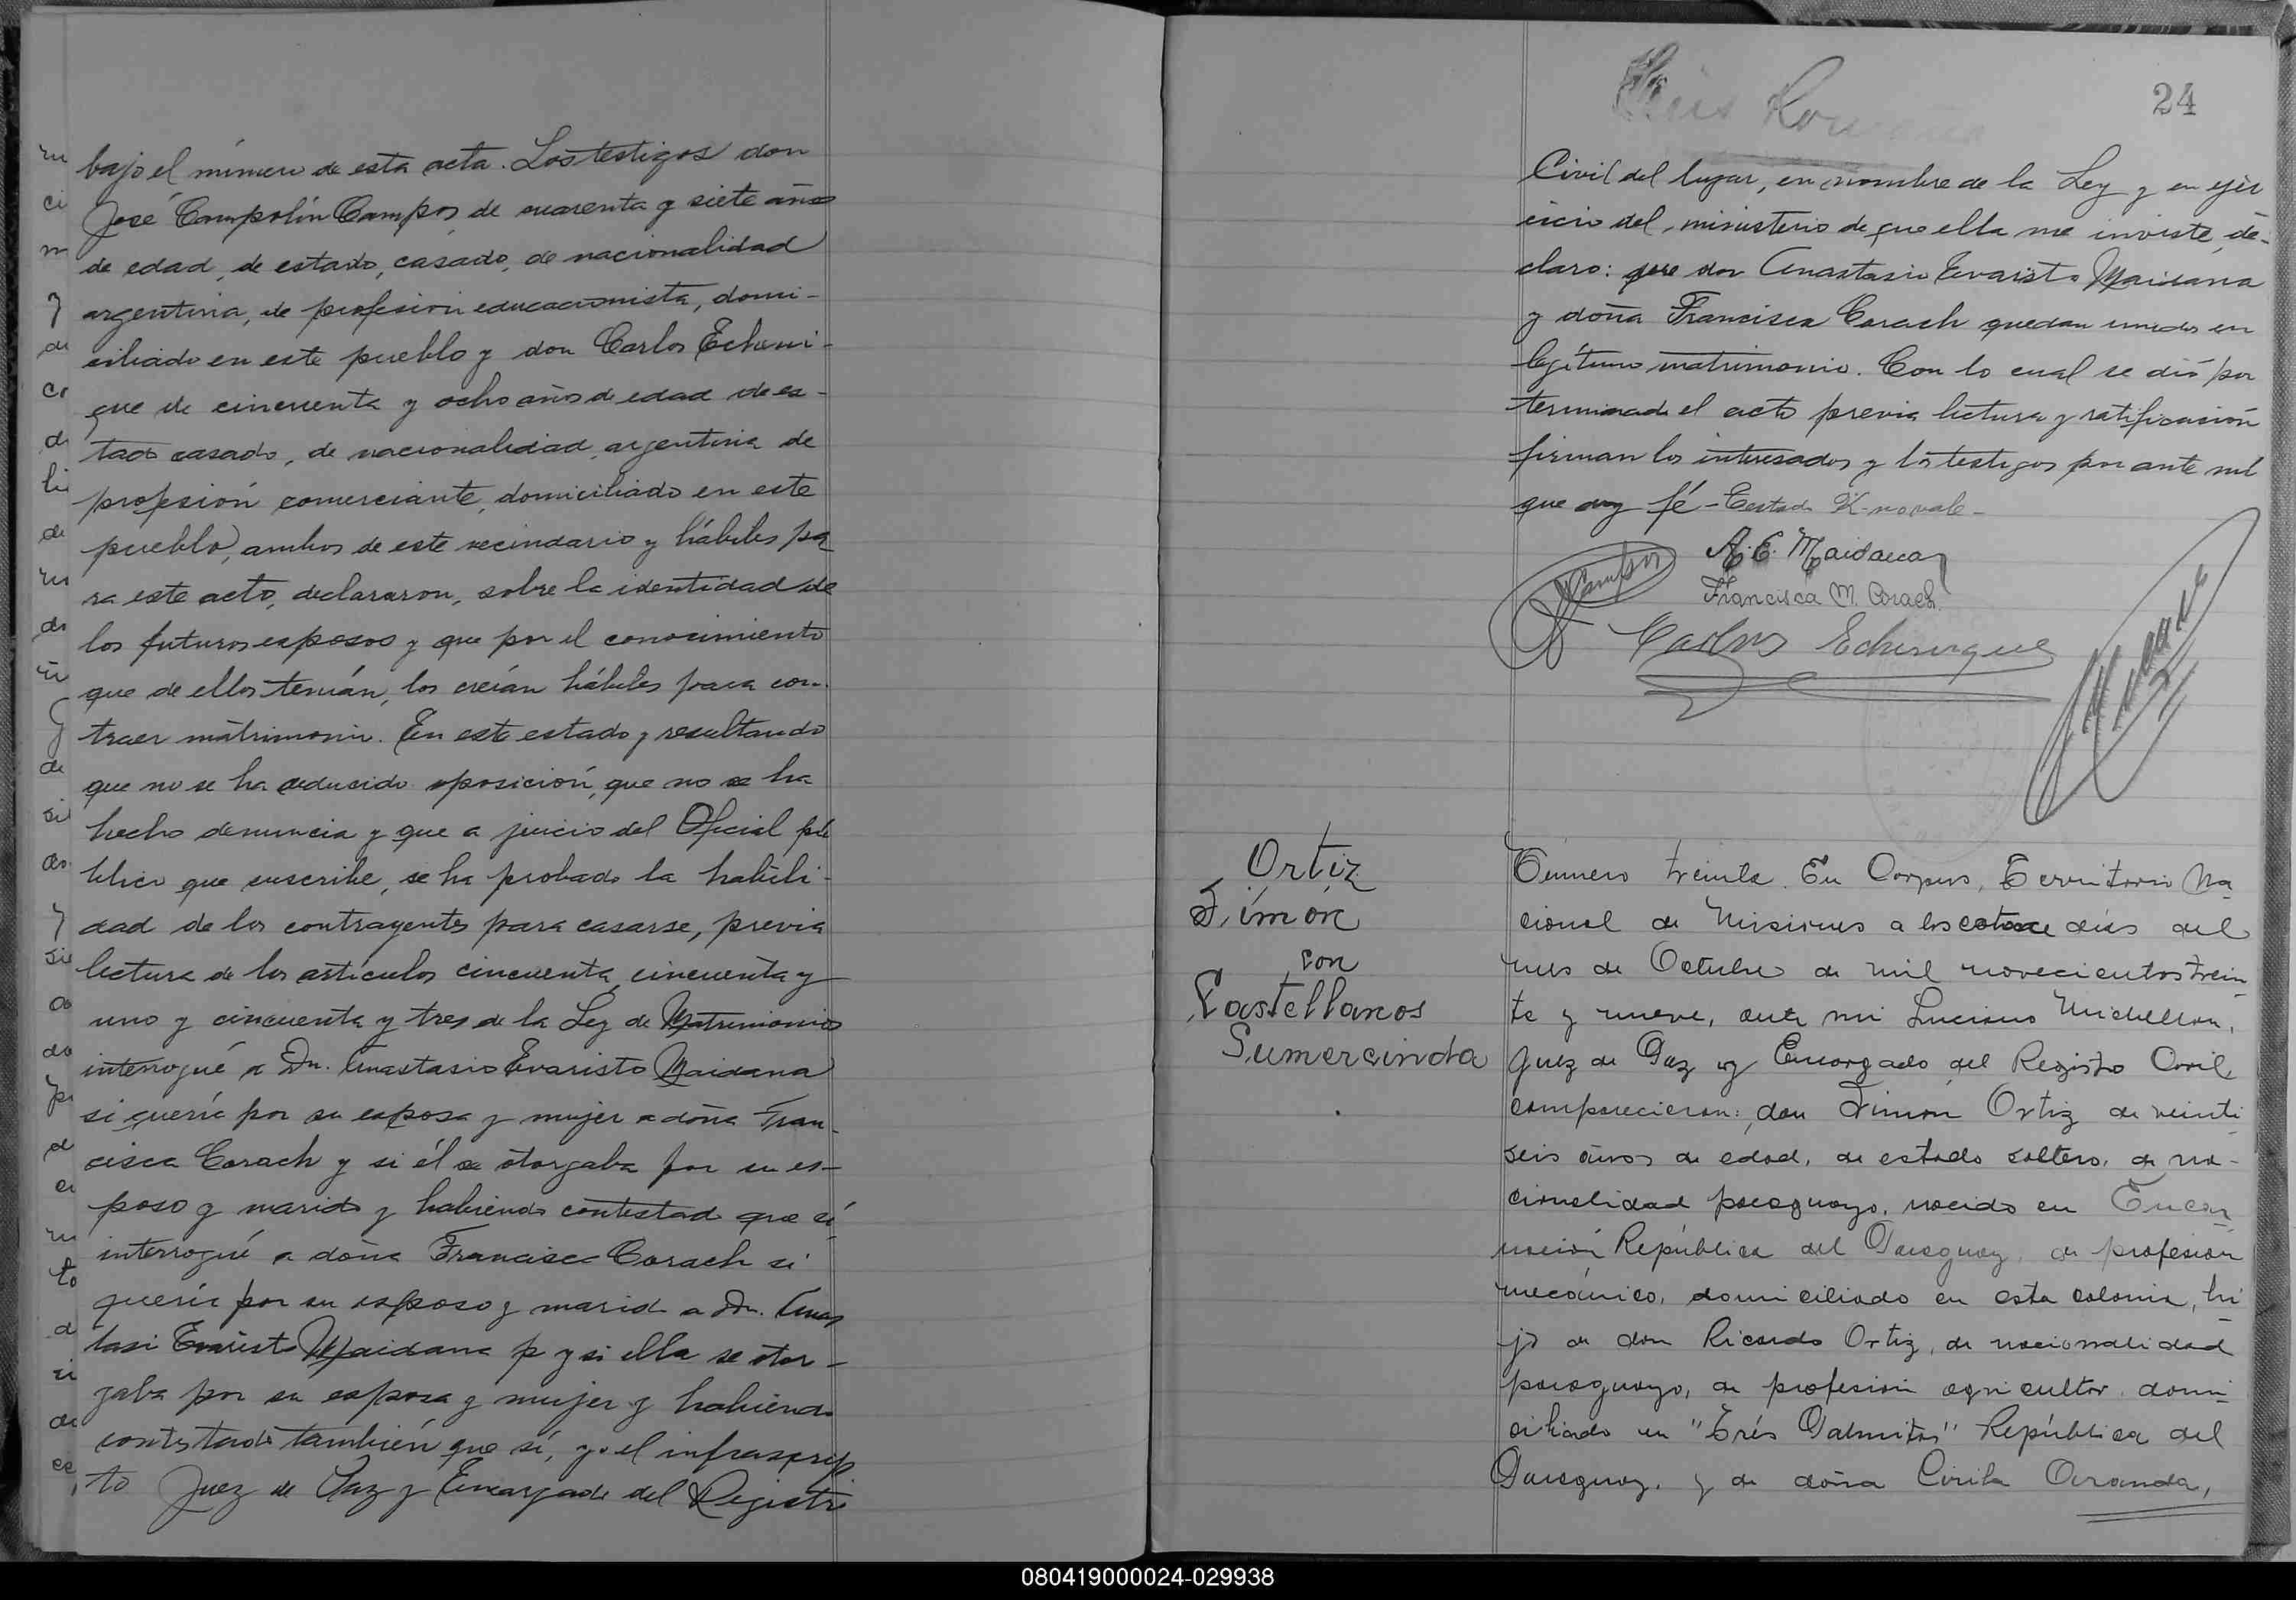 bajo el número de esta acta. Los testigos don
José Campolín Campos, de cuarenta y siete años
de edad, de estado, casado, de nacionalidad
argentina, de profesión educacionista, domi-
ciliado en este pueblo y don Carlos Echeni-
que de cincuenta y ocho años de edad de es-
tado casado, de nacionalidad argentina de
profesión comerciante, domiciliado en este
pueblo, ambos de este vecindario y hábiles pa
ra este acto, declararon, sobre la identidad de
los futuros esposos y que por el conocimiento
que de ellos tenían, los creían hábiles para con-
traer matrimonio. En este estado y resultando
que no se ha deducido oposición, que no se ha
hecho denuncia y que a juicio del Oficial pú
blico que suscribe, se ha probado la habili-
dad de los contrayentes para casarse, previa
lectura de los artículos cincuenta, cincuenta y
uno y cincuenta y tres de la Ley de Matrimonios
interrogué a Dn. Anastasio Evaristo Maidana
si quería por su esposa y mujer a doña Fran-
cisca Corach y si él se otorgaba por su es-
poso y marido y habiendo contestad que sí
interrogué a doña Francisca Corach si
quería por su esposo y marido a Dn. Anas
tasi Evaristo Maidana p y si ella se otor-
gaba por su esposa y mujer y habiendo
contestado también que sí, yo el infrascrip
to Juez de Paz y Encargado del Registro
24
Civil del lugar, en nombre de la Ley y en ejer
cicio del ministerio de que ella me inviste, de-
claro: que don Anastasio Evaristo Maidana
y doña Francisca Corach quedan unidos en
legítimo matrimonio. Con lo cual se dió por
terminado el acto previa lectura y ratificación
firman los interesados y los testigos por ante mí
que doy fé - Testado no vale -
A. E. Maidana
Campos
Francisca M. Corach.
Carlos Echenique
Ortiz
Simón
con
Castellanos
Gumercinda
Número treinta. En Corpus, Territorio Na
cional de Misiones a los catorce días del
mes de Octubre de mil novecientos trein
ta y nueve, ante mi Luciano Michellon,
Juez de Paz y Encargado del Registro Civil,
comparecieron: don Simón Ortiz de veinti
seis años de edad, de estado soltero, de na-
cionalidad paraguayo, nacido en Encar
nación República del Paraguay, de profesión
mecánico, domiciliado en esta colonia, hi
jo de don Ricardo Ortiz, de nacionalidad
paraguayo, de profesión agricultor domi-
ciliado en "Trés Palmitas" República del
Paraguay, y de doña Cirila Aranda,
080419000024-029938